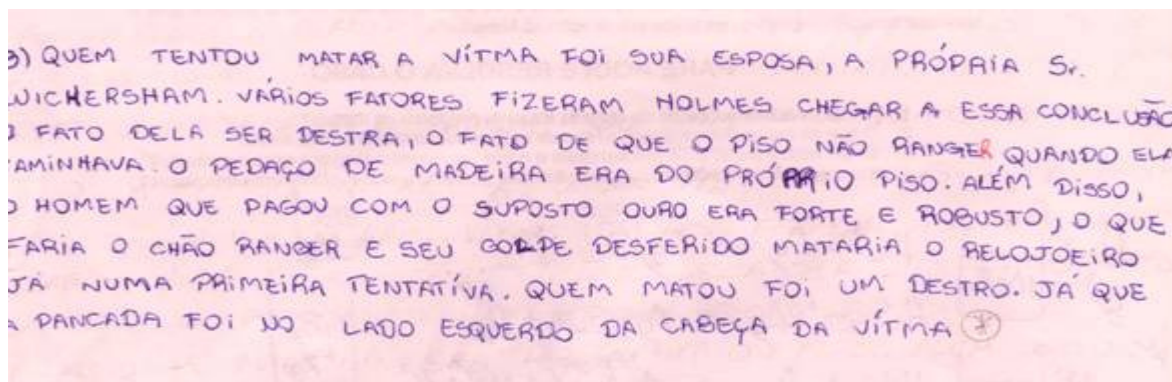 3) QUEM TENTOU MATAR A VÍTMA FOI SUA ESPOSA, A PRÓPRIA Sr.
WICHERSHAM. VÁRIOS FATORES FIZERAM HOLMES CHEGAR A ESSA CONCLUSÃO
O FATO DELA SER DESTRA, O FATO DE QUE O PISO NÃO RANGER QUANDO ELA
CAMINHAVA. O PEDAÇO DE MADEIRA ERA DO PRÓPRIO PISO. ALÉM DISSO,
O HOMEM QUE PAGOU COM O SUPOSTO OURO ERA FORTE E ROBUSTO, O QUE
FARIA O CHÃO RANGER E SEU GOLPE DESFERIDO MATARIA O RELOJOEIRO
JÁ NUMA PRIMEIRA TENTATÍVA. QUEM MATOU FOI UM DESTRO. JÁ QUE
A PANCADA FOI NO LADO ESQUERDO DA CABEÇA DA VÍTMA *